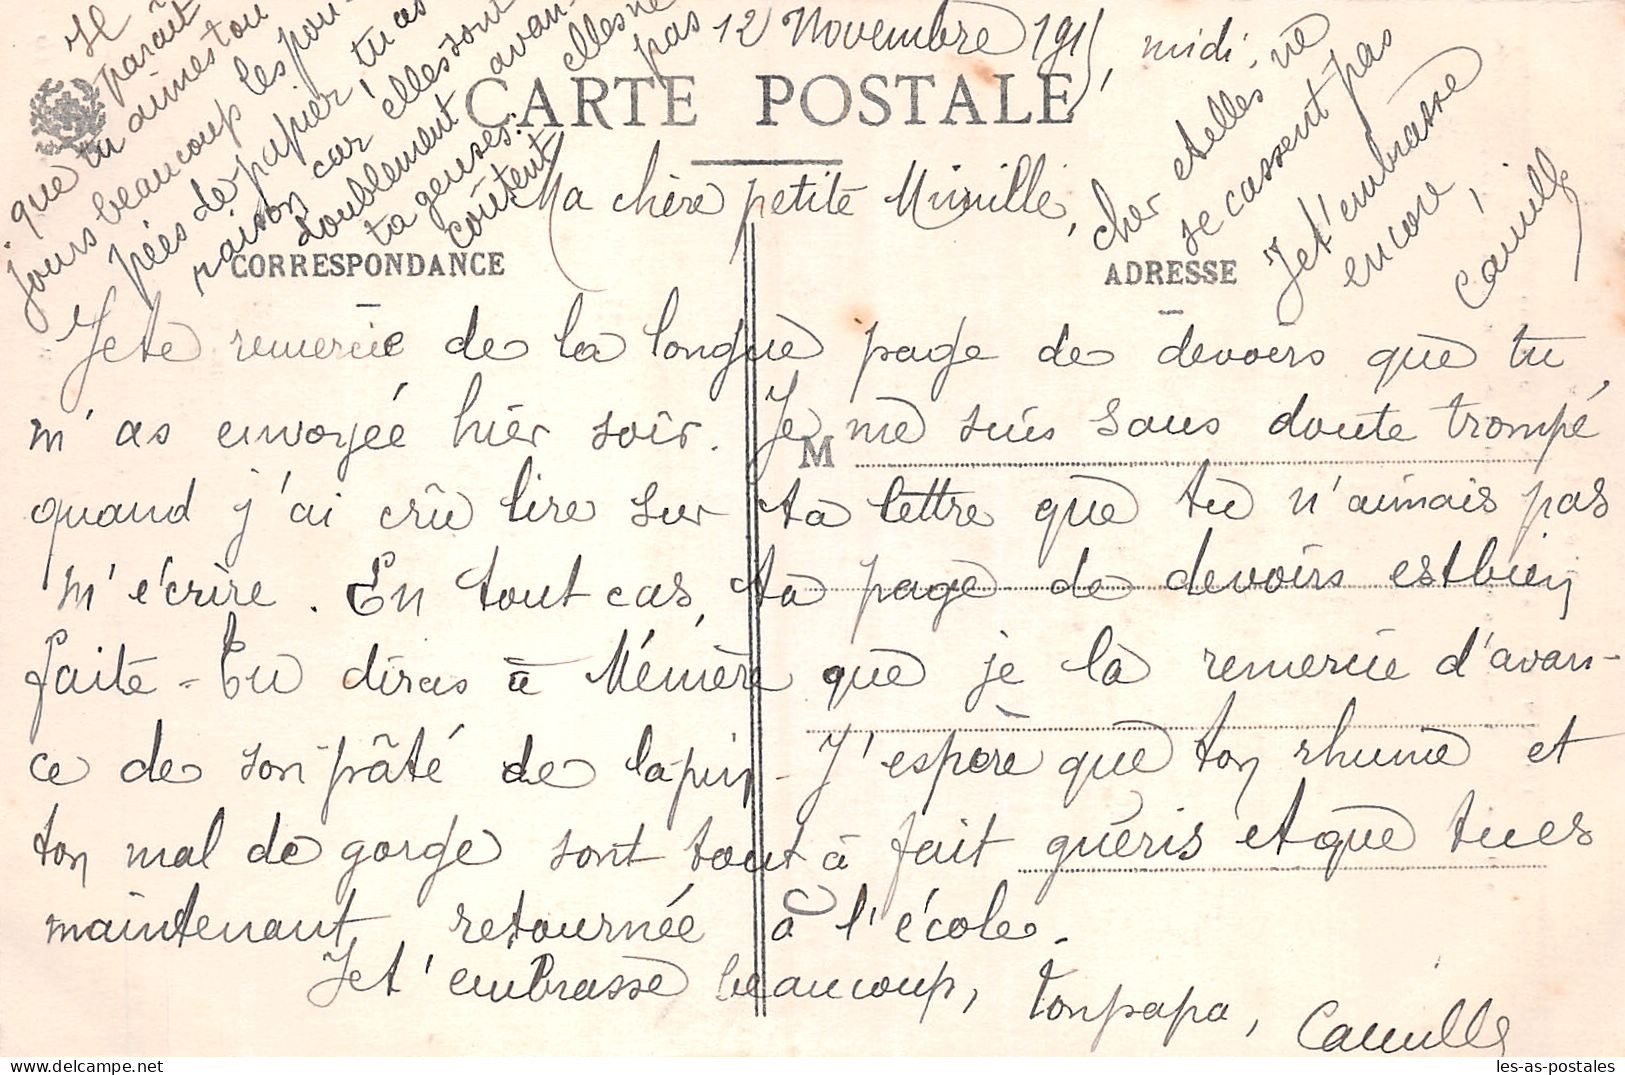 12 Novembre 1915, midi,
CARTE POSTALE
Ma chère petite Mimille,
CORRESPONDANCE
ADRESSE
Je te remercie de la longue page de devoirs que tu
m'as envoyée hier soir. Je me suis sans doute trompé,
M
quand j'ai crû lire sur ta lettre que tu n'aimais pas
m'écrire. En tout cas, ta page de devoirs est bien
faite - Tu diras à Mémère que je la remercie d'avan-
ce de son pâté de lapin - J'espère que ton rhume et
ton mal de gorge sont tout à fait guéris et que tu es
maintenant retournée à l'école.
Je t'embrasse beaucoup, ton papa, Camille
Il paraît
que tu aimes tou
jours beaucoup les pou-
pées de papier, tu as
raison car elles sont
doublement avan-
tageuses: elles ne
coûtent pas
cher et elles ne
se cassent pas
Je t'embrasse
encore,
Camille
les-as-postales.com